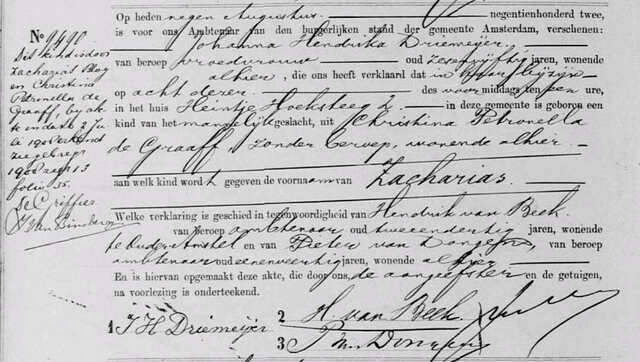 No 9490
Dit kind is door
Zacharias
en Christina
Petronella de
Graaff, by akte
folio 35.
de Griffier
Op heden negen Augustus negentienhonderd twee,
is voor ons Ambtenaar van den burgerlijken stand der gemeente Amsterdam, verschenen:
Johanna Hendrika Driemeijer,
van beroep vroedvrouw oud zesenvijftig jaren, wonende
alhier, die ons heeft verklaard dat in haar bijzijn
op acht dezer des voor middags ten een ure,
in het huis Heintje Hoeksteeg 2 in deze gemeente is geboren een
kind van het mannelijk geslacht, uit Christina Petronella
de Graaff, zonder beroep, wonende alhier.
aan welk kind wordt gegeven de voornaam van Zacharias.
Welke verklaring is geschied in tegenwoordigheid van Hendrik van Beek.
van beroep ambtenaar oud tweeendertig jaren, wonende
te Ouder Amstel en van Pieter van Dongen, van beroep
ambtenaar oud eenenveertig jaren, wonende alhier
En is hiervan opgemaakt deze akte, die door ons, de aangeefster en de getuigen,
na voorlezing is onderteekend.
1 J H Driemeijer 2 H. van Beek
3 P. v. Dongen